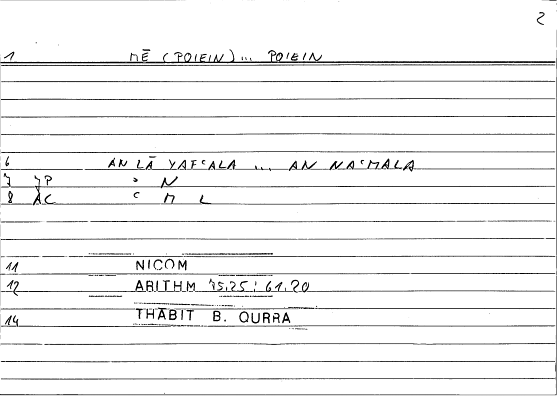 2
1 MĒ (POIEIN)... POIEIN
6 AN LĀ YAFʿALA ... AN NAʿMALA
7 JP ʾ N
8 AC ʿ M L
11 NICOM
12 ARITHM 45.25 : 61.20
14 THĀBIT B. QURRA